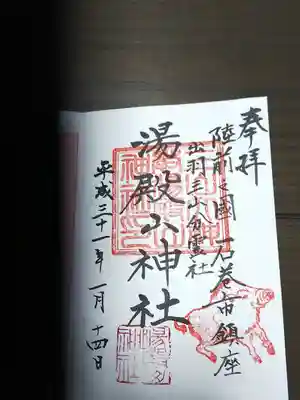 奉拝
陸前之國 石巻市鎮座
出羽三山分霊社
湯殿山神社
平成三十一年 一月 十四日